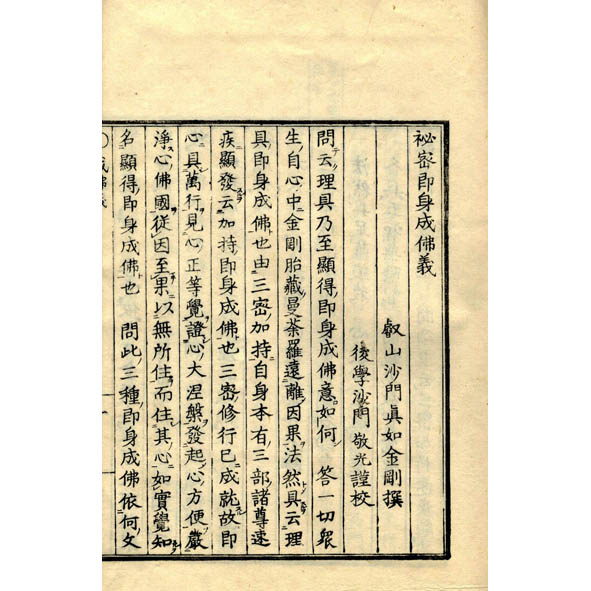 祕密即身成佛義
叡山沙門眞如金剛撰
後學沙門敬光謹校
問云理具乃至顯得即身成佛意如何 答一切衆
生自心中金剛胎藏曼荼羅遠離因果法然具云理
具即身成佛也由三密加持自身本有三部諸尊速
疾顯發云加持即身成佛也三密修行已成就故即
心具萬行見心正等覺證心大涅槃發起心方便嚴
淨心佛國從因至果以無所住而住其心如實覺知
名顯得即身成佛也 問此三種即身成佛依何文